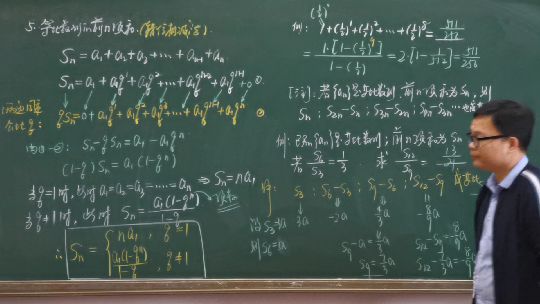 5. 等比数列的前n项和. (错位相减法).
Sn = a1 + a2 + a3 + ⋯ + an-1 + an
Sn = a1 + a1q + a1q² + ⋯ + a1qⁿ⁻² + a1qⁿ⁻¹ ①
两边同乘
公比q:
qSn = 0 + a1q + a1q² + a1q³ + ⋯ + a1qⁿ⁻¹ + a1qⁿ ②
由①-②: Sn - qSn = a1 - a1qⁿ
(1-q)Sn = a1(1-qⁿ)
当q=1时, 此时 a1 = a2 = a3 = ⋯ = an ⇒ Sn = na1
当q≠1时, 此时 Sn = a1(1-qⁿ)/1-q
∴ Sn = { na1, q=1
a1(1-qⁿ)/1-q, q≠1
例:
= 1·[1-(½)⁹]/1-(½) = 2·[1-1/512] = 511/256
[注]: 若{an}是等比数列, 前n项和为Sn, 则
Sn; S2n-Sn; S3n-S2n; S4n-S3n ⋯
例: 已知{an}是等比数列, 前n项和为Sn
若 S6/S3 = 1/3 求
S3; S6-S3; S9-S6; S12-S9
设S3=3a
则S6=a
3a -2a 4/3a -8/9a
S9-a=4/3a
S9=7/3a